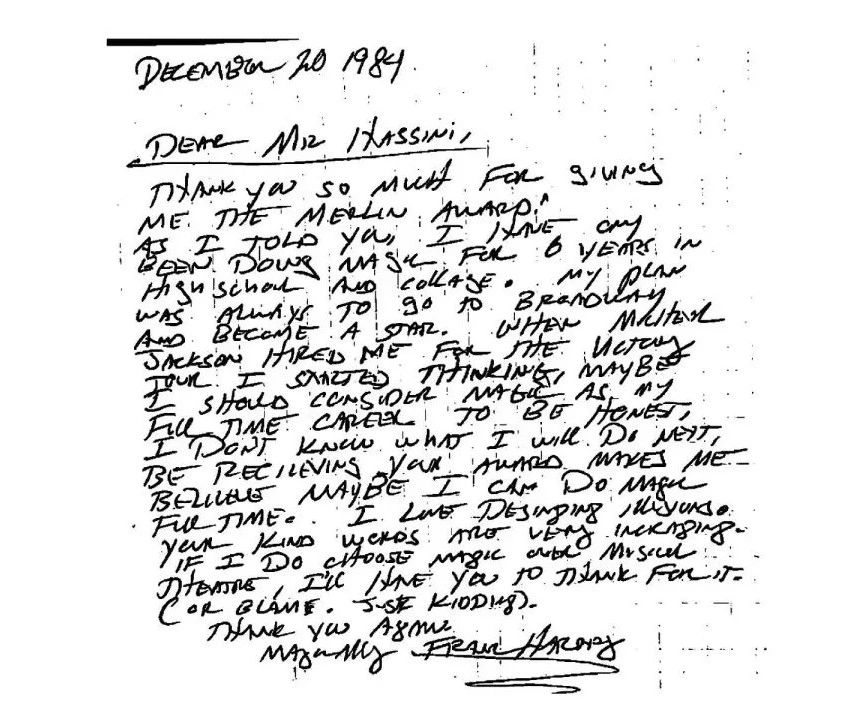 DECEMBER 20 1984
DEAR MR HASSINI,
THANK YOU SO MUCH FOR GIVING
ME THE MERLIN AWARD.
AS I TOLD YOU, I HAVE ONY
BEEN DOING MAGIC FOR 6 YEARS IN
HIGH SCHOOL AND COLLAGE. MY PLAN
WAS ALWAYS TO GO TO BROADWAY
AND BECOME A STAR. WHEN MICHAEL
JACKSON HIRED ME FOR THE VICTORY
TOUR I STARTED THINKING, MAYBE
I SHOULD CONSIDER MAGIC AS MY
FULL TIME CAREER TO BE HONEST,
I DON'T KNOW WHAT I WILL DO NEXT,
BE RECIEVING YOUR AWARD MAKES ME
BELIEVE MAYBE I CAN DO MAGIC
FULL TIME. I LOVE DESINGING ILLUSIONS.
YOUR KIND WORDS ARE VERY INCRAGING.
IF I DO CHOOSE MAGIC OVER MUSICAL
THEATRE, I'LL HAVE YOU TO THANK FOR IT.
(OR BLAME. JUST KIDDING).
THANK YOU AGAIN
MAGICALLY FRANZ HARARY